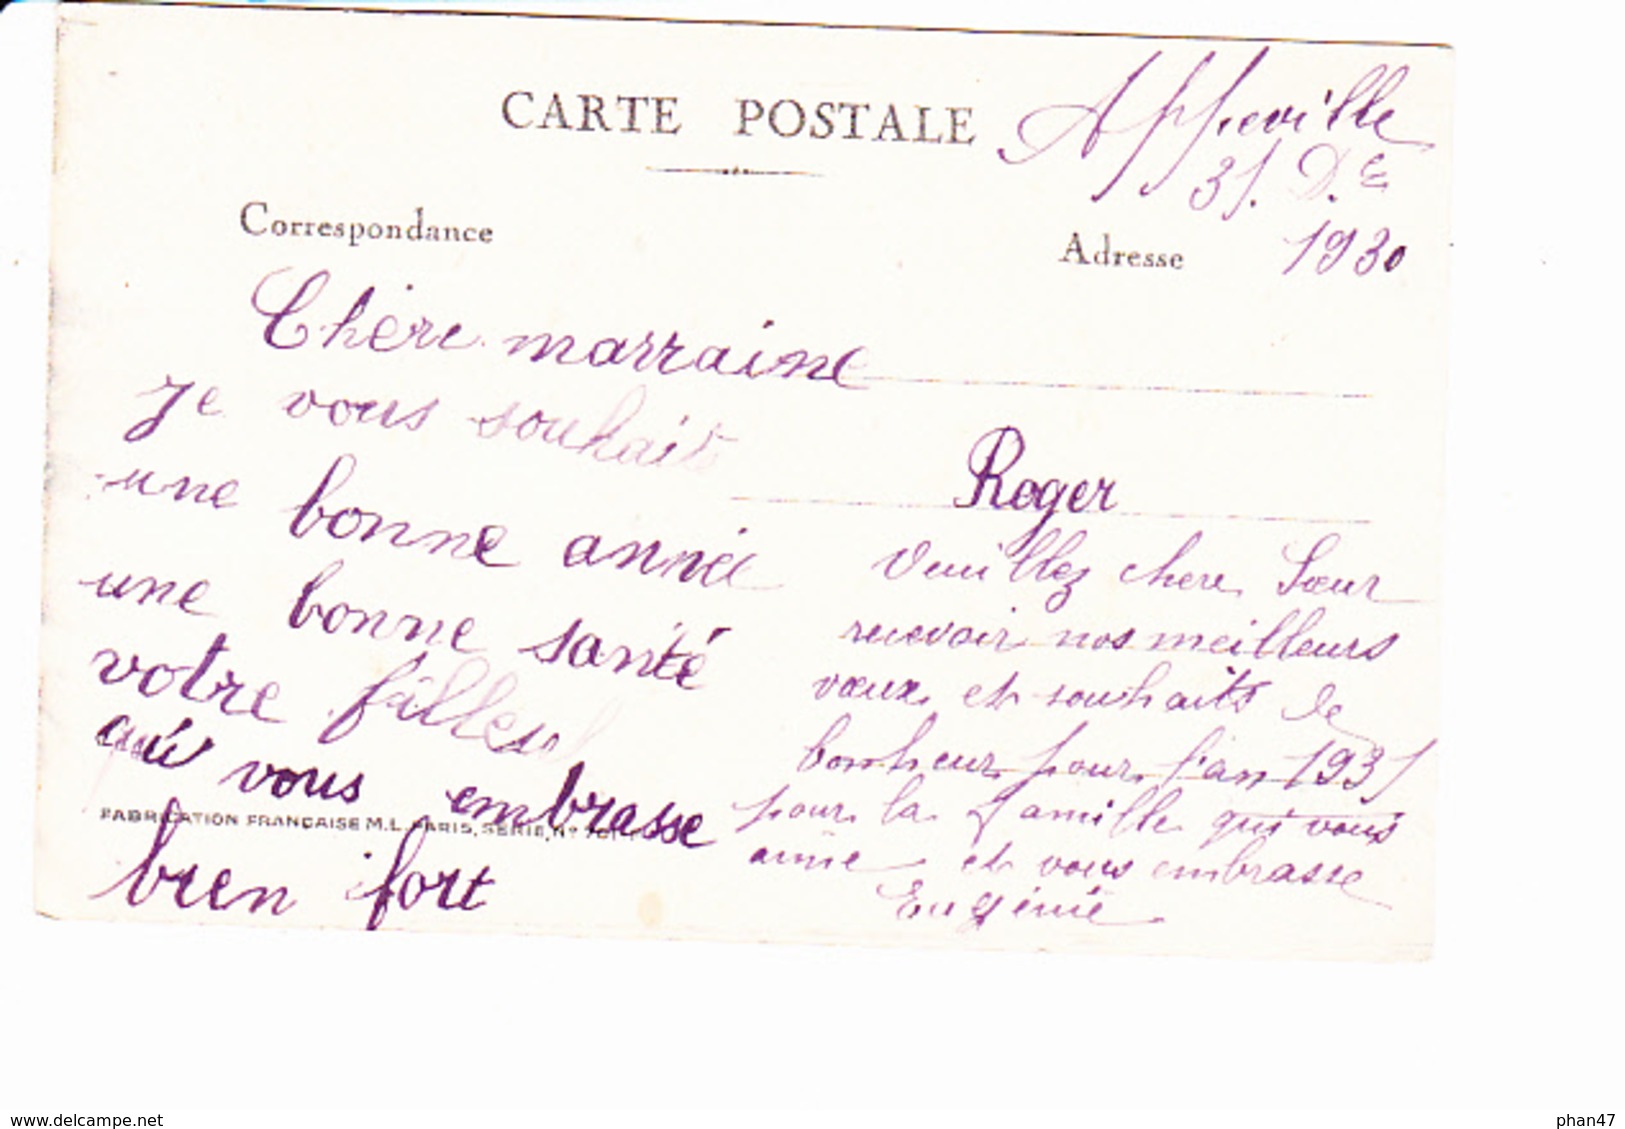 CARTE POSTALE
Appeville
31. Dce
1930
Correspondance
Adresse
Chère marraine
Je vous souhait
une bonne année
une bonne santé
votre filleul
qui vous embrasse
FABRICATION FRANÇAISE M.L. PARIS, SERIE, N°
bien fort
Roger
Veuillez chere Sœur
recevoir nos meilleurs
vœux et souhaits de
bonheur pour l'an 1931
pour la famille qui vous
aime et vous embrasse
Eugénie
www.delcampe.net
phan47